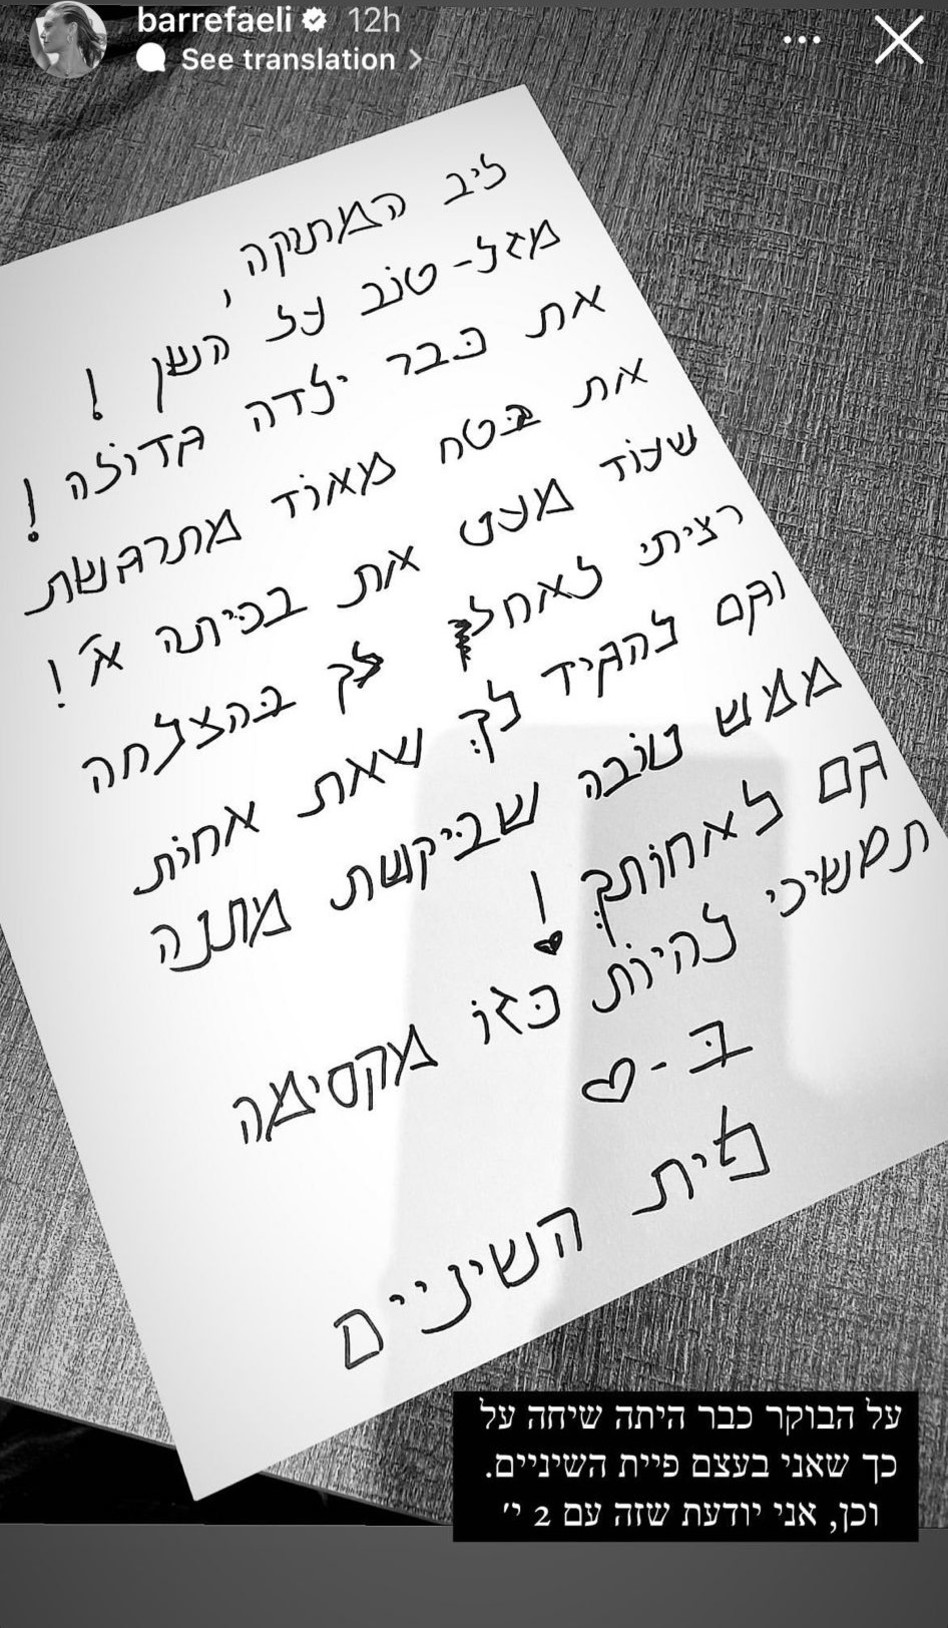 barrefaeli 12h
See translation
ליב המתוקה,
מזל-טוב על השן!
את כבר ילדה גדולה!
את בטח מאוד מתרגשת
שעוד מעט את בכיתה א'!
רציתי לאחל לך בהצלחה
וגם להגיד לך שאת אחות
ממש טובה שביקשת מתנה
גם לאחותך!
תמשיכי להיות כזו מקסימה
ב-♡
פית השיניים
על הבוקר כבר היתה שיחה על
כך שאני בעצם פיית השיניים.
וכן, אני יודעת שזה עם 2 י׳